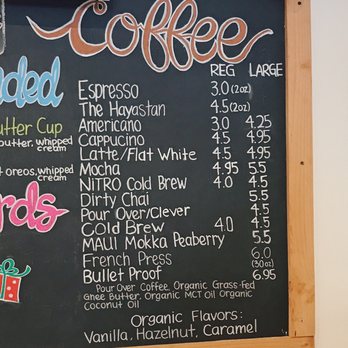 Coffee
REG LARGE
Espresso 3.0 (2oz)
The Hayastan 4.5 (2oz)
Americano 3.0 4.25
Cappucino 4.5 4.95
Latte/Flat White 4.5 4.95
Mocha 4.95 5.5
NiTRO Cold Brew 4.0 4.5
Dirty Chai 5.5
Pour Over/Clever 4.5
Cold Brew 4.0 4.5
MAUI Mokka Peaberry 5.5
French Press 6.0
(30oz)
Bullet Proof 6.95
Pour Over Coffee, Organic Grass-fed
Ghee Butter, Organic MCT Oil Organic
Coconut Oil
Organic Flavors:
Vanilla, Hazelnut, Caramel
ded
utter Cup
butter, whipped
cream
t oreos, whipped
cream
rds